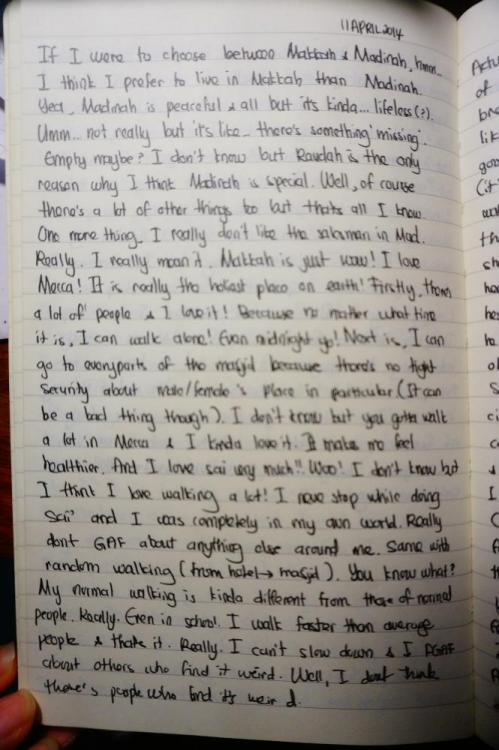 11 APRIL 2014
If I were to choose between Makkah & Madinah, hmm...
I think I prefer to live in Makkah than Madinah.
Yea, Madinah is peaceful & all but its kinda... lifeless(?).
Umm... not really but it's like... there's something 'missing'.
Empty maybe? I don't know but Raudah is the only
reason why I think Madinah is special. Well, of course
there's a lot of other things too but thats all I know.
One more thing, I really don't like the salesman in Mad.
Really. I really mean it. Makkah is just wow! I love
Mecca! It is really the holiest place on earth! Firstly, theres
a lot of people & I love it! Because no matter what time
it is, I can walk alone! Even midnight yo! Next is, I can
go to everyparts of the masjid because there's no tight
security about male/female's place in particular (It can
be a bad thing though). I don't know but you gotta walk
a lot in Mecca & I kinda love it. It make me feel
healthier. And I love sai very much!! Woo! I don't know but
I think I love walking a lot! I never stop while doing
Sai' and I was completely in my own world. Really
dont GAF about anything else around me. Same with
random walking (from hotel → masjid). You know what?
My normal walking is kinda different from those of normal
people. Really. Even in school. I walk faster than average
people & thats it. Really. I can't slow down & I
about others who find it weird. Well, I dont think
there's people who find its weird.
Actu
of